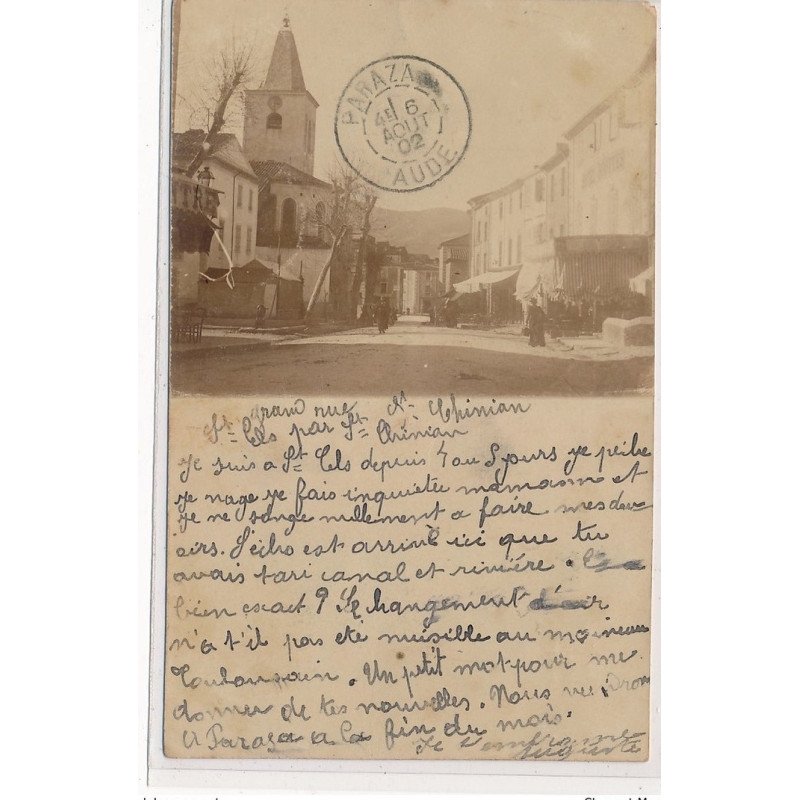 PARAZA
4E 6
AOUT
02
AUDE
grand rue St Chinian
St Cels par St Chinian
je suis a St Cels depuis 4 ou 5 jours je pêche
je nage je fais inquiéter mamaom et
je ne songe nullement a faire mes dev-
oirs. L'écho est arrivé ici que tu
avais tari canal et rivière.
bien exact ? Le changement d'air
n'a t'il pas été nuisible au moineau
Toulousain. Un petit mot pour me
donner de tes nouvelles. Nous
A Paraza a la fin du mois.
Je t'embrasse
Auguste